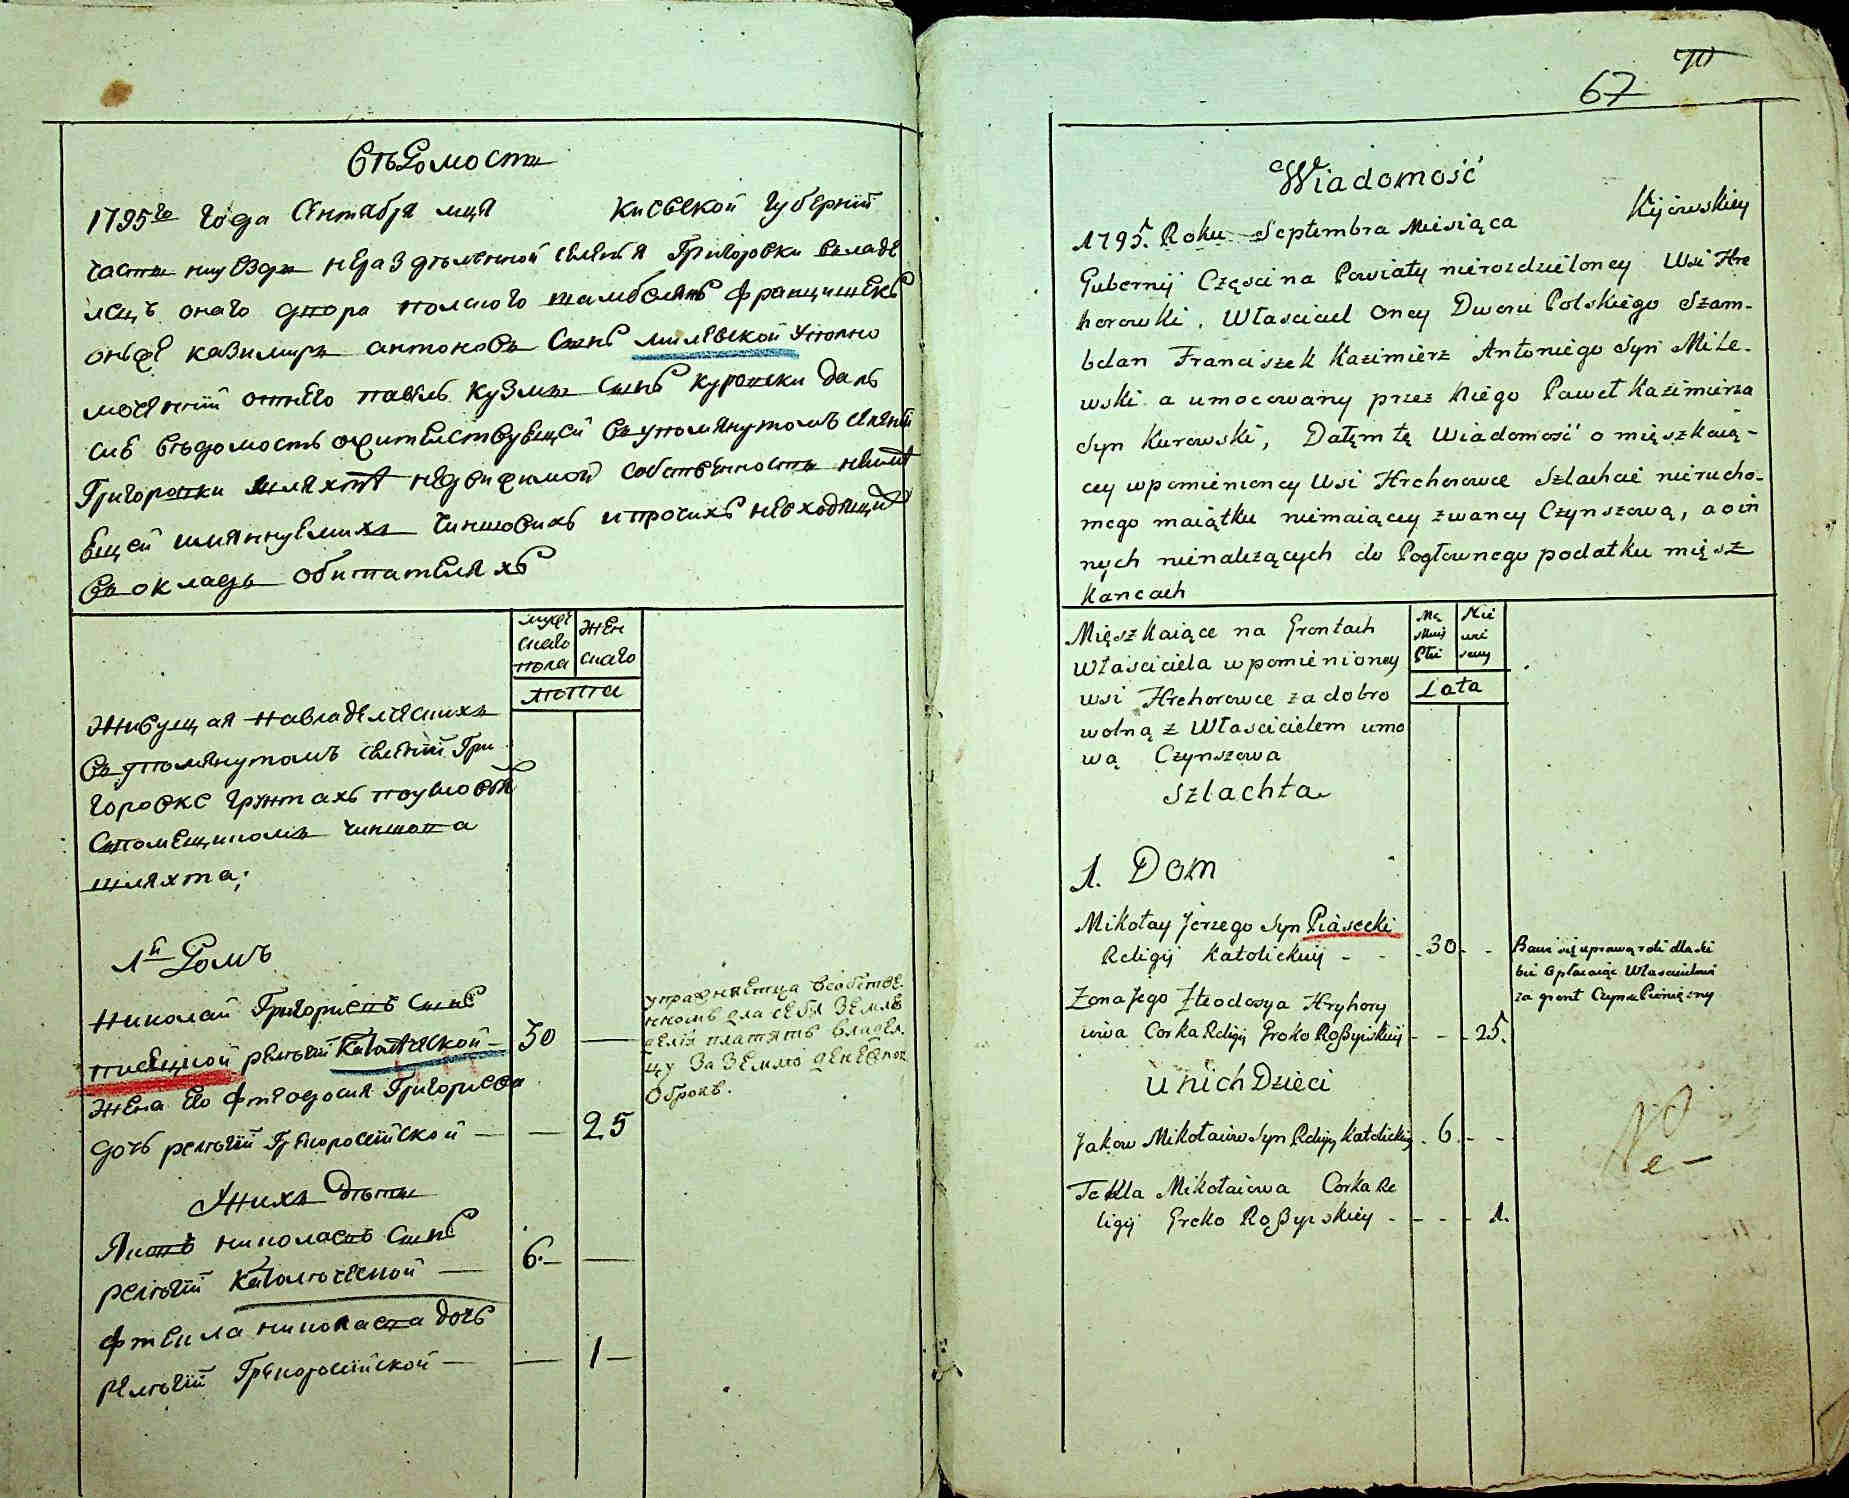 Вѣдомость
1795го года Сентября мця Киевской губернии
части на уезды неразделенной селения Григоровки владе
лецъ онаго двора полского шамбелянъ Францишекъ
онъже Казимиръ Антоновъ сынъ Милевской уполно
моченній отнего Павелъ Кузмы сынъ Куровски далъ
сию вѣдомость ожителствующей въупомянутомъ селении
Григоровки шляхты недвижимой собственности неимѣ
ющей имяннуемихъ чиншовихъ ипрочихъ невходящихъ
въокладъ обитателяхъ
мужескаго пола
женскаго
лѣта
Живущая навладелческихъ
въупомянутомъ селении Гри
горовке грунтахъ поусловию
спомещикомъ чиншова
шляхта;
1й Домъ
Николай Григориевъ сынъ
Писецкой релѣгии Католической — 30 —
жена его Фтеодосия Григориева
дочь релѣгии Грекоросийской — — 25
упражняется всобствен
номъ для себя земле
делии платятъ владел
цу заземлю денежной
оброкъ.
Унихъ дѣти
Яковъ николаевъ сынъ
релѣгии Католической — 6. —
Фтекла николаева дочь
релѣгии Грекоросийской — — 1 —
70
67
Wiadomość
1795. Roku Septembra Miesiąca Kijowskiey
Gubernij Części na Powiaty nierozdzieloney Wsi Hre
horowki, Właściciel oney Dworu Polskiego Szam-
belan Franciszek Kazimierz Antoniego Syn Mile-
wski a umocowany przez Niego Paweł Kazimierza
Syn Kurowski, Dałęm tę Wiadomość o mięszkaią-
cey wpomienioney Wsi Hrehorowce Szlachcie nierucho-
mego maiątku niemaiącey zwaney Czynszową, a oin
nych nienależących do Pogłownego podatku mięsz
kańcach
Mięszkaiące na Grontach
Właściciela wpomienioney
wsi Hrehorowce za dobro
wolną z Właścicielem umo
wą Czynszowa
Szlachta
Lata
1. Dom
Mikołay Jerzego Syn Piasecki
Religij Katolickiey - - . 30 - -
Bawi się uprawą roli dla sie
bie opłacaiąc Właścicielowi
za gront Czynsz Pieniężny
Żona Jego Fteodosya Hryhory
iowa Corka Religij Greko Roßyiskiey - - 25.
U nich Dzieci
Jakow Mikołaiow Syn Religij Katolickiey . 6. - -
Tekla Mikołaiowa Corka Re
ligij Greko Roßyiskiey - - - - 1.